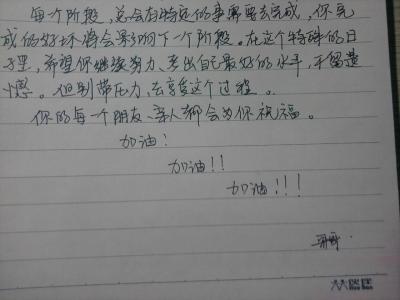 每个阶段，总会有特定的事需要去完成，你完
成的好坏将会影响下一个阶段。在这个特殊的日
子里，希望你继续努力、考出自己最好的水平，不留遗
憾。但别带压力、去享受这个过程。
你的每一个朋友、亲人都会为你祝福。
加油！
加油！！
加油！！！